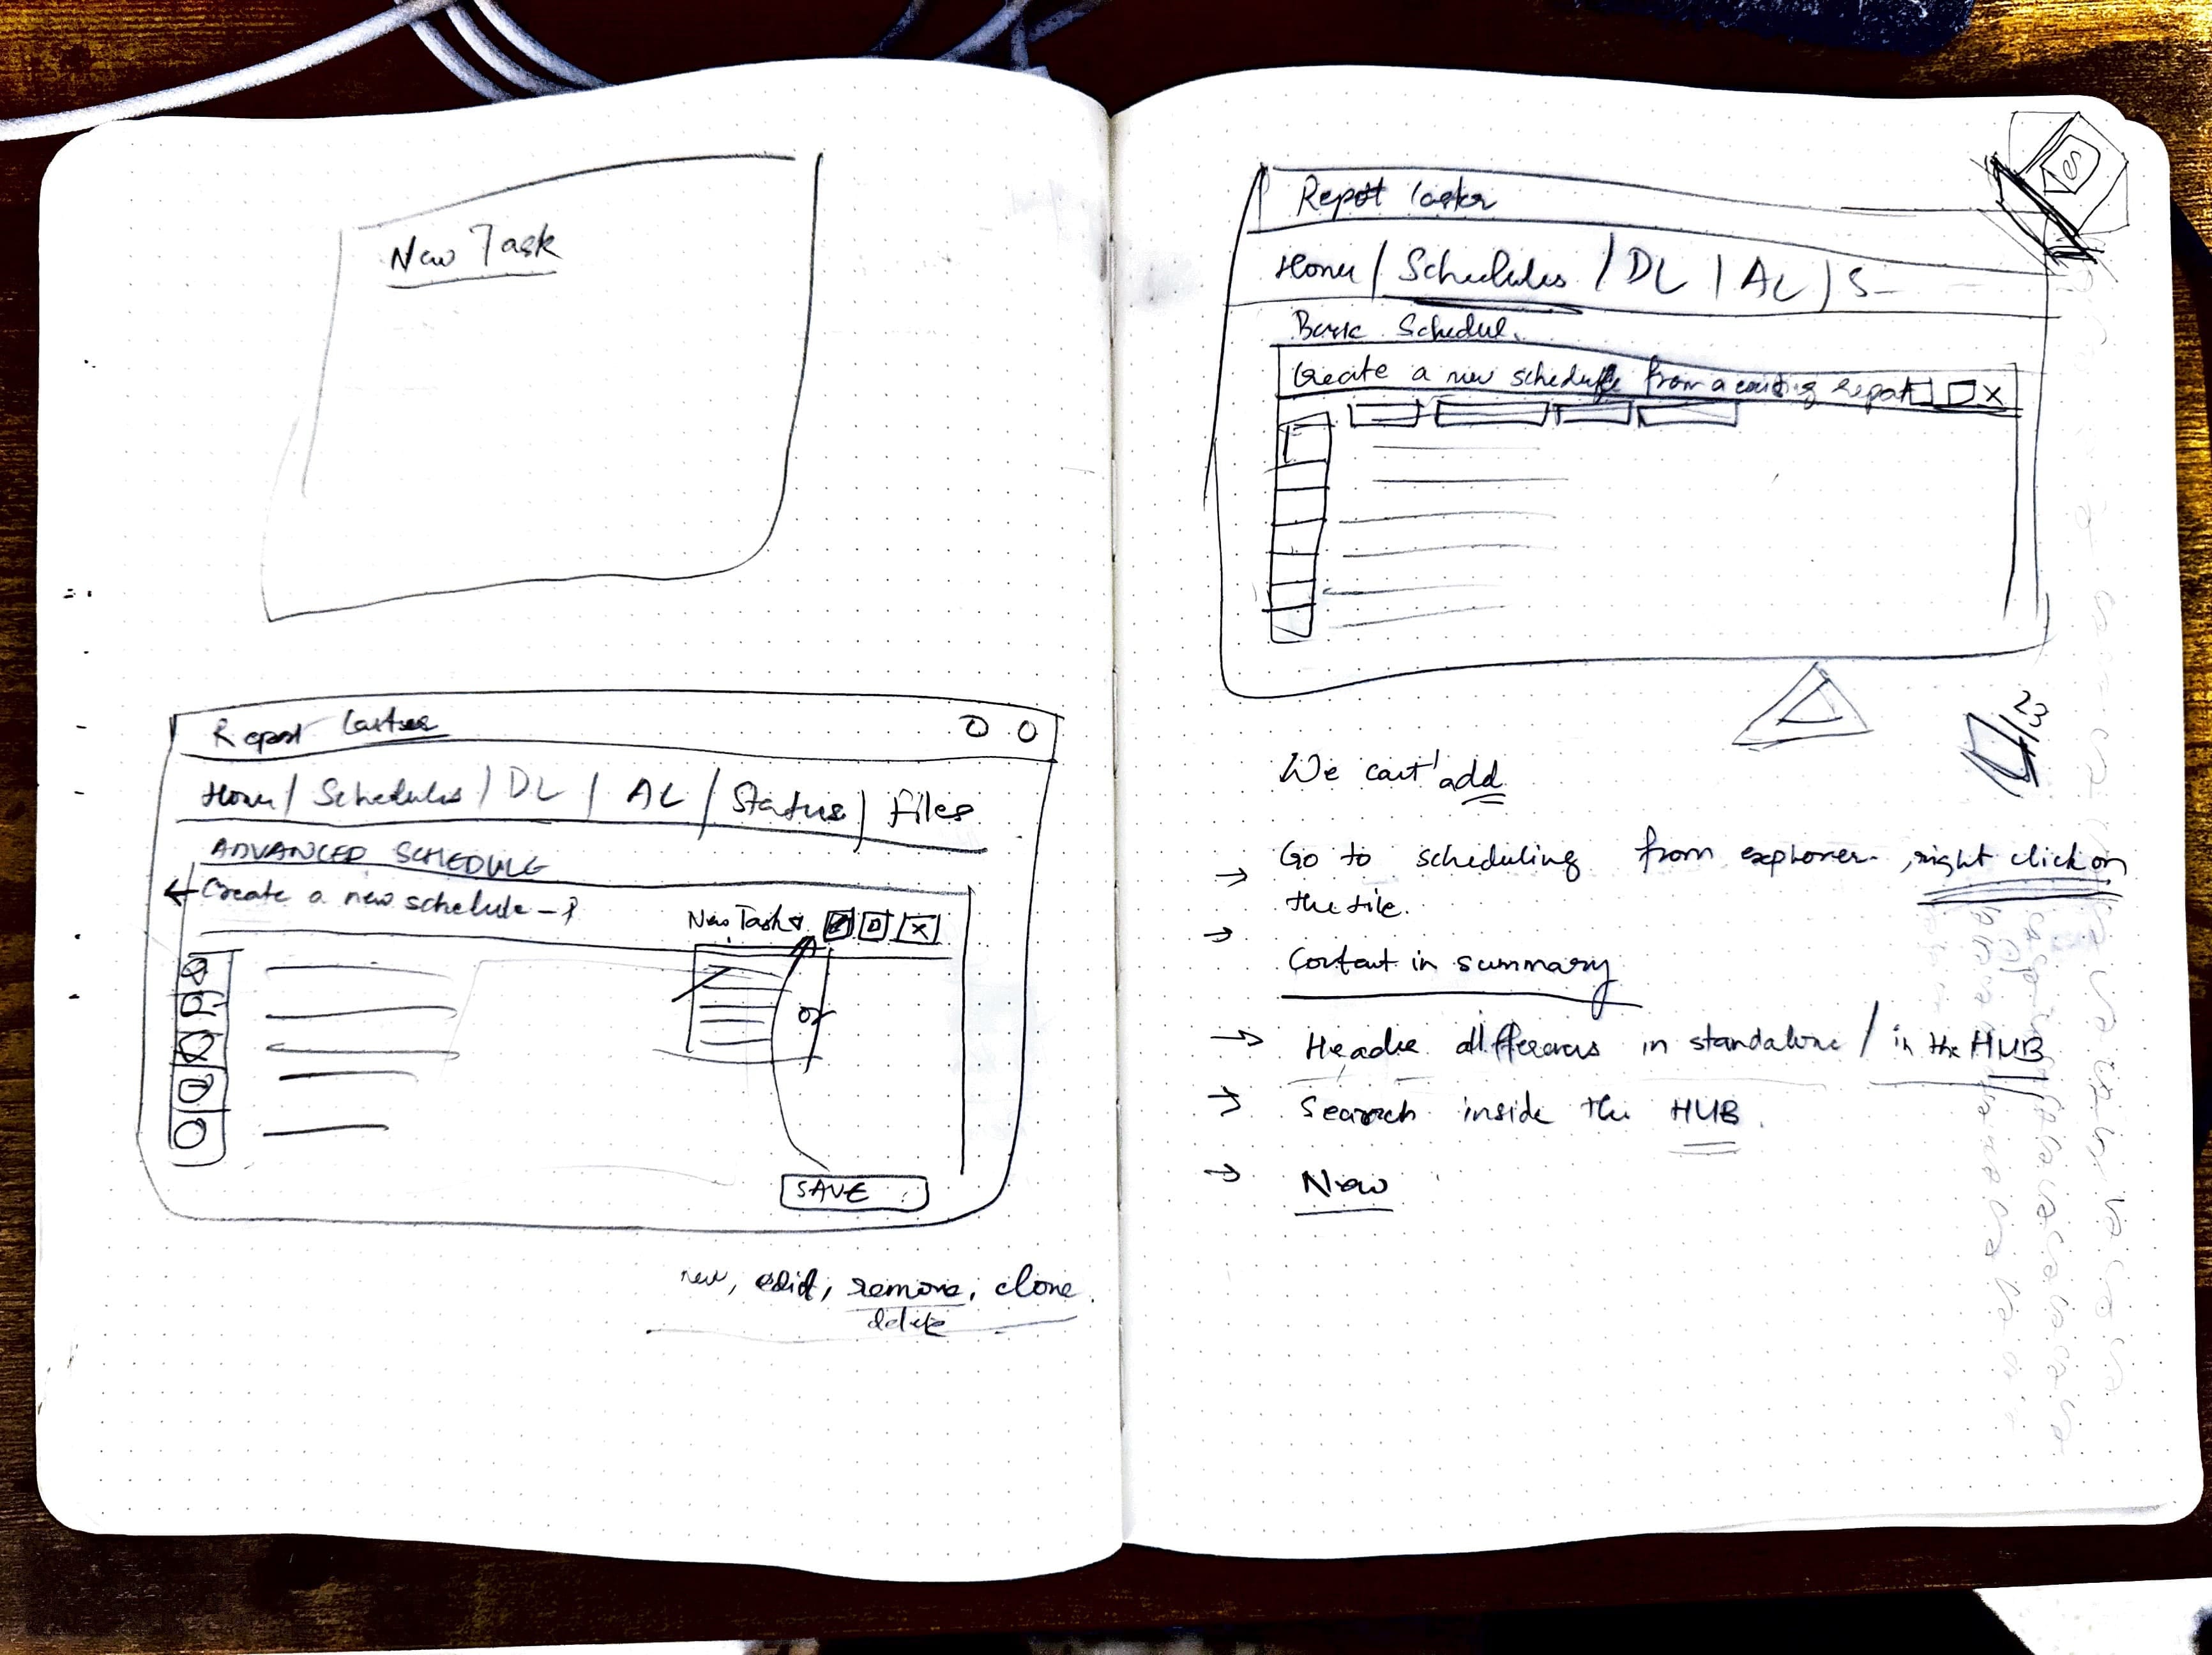 New Task
Report Caster
Home / Schedules / DL / AL / Status / Files
ADVANCED SCHEDULE
Create a new schedule -
New Task
or
SAVE
new, edit, remove, clone.
delete
Report Caster
Home / Schedules / DL / AL / S-
Schedul.
Create a new schedule from a existing report
X
We cant' add
→ Go to scheduling from explorer, right click on
the file.
→
Content in summary
→ Header differences in standalone / in the HUB
→ Search inside the HUB.
→ New
23